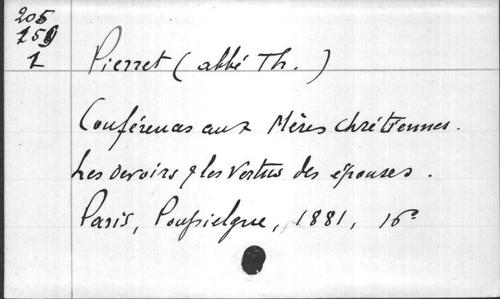 205
159
1
Pierret (abbé Th.)
Conférences aux Mères Chrétiennes.
Les devoirs & les vertus des épouses.
Paris, Poussielgue, 1881, 16º